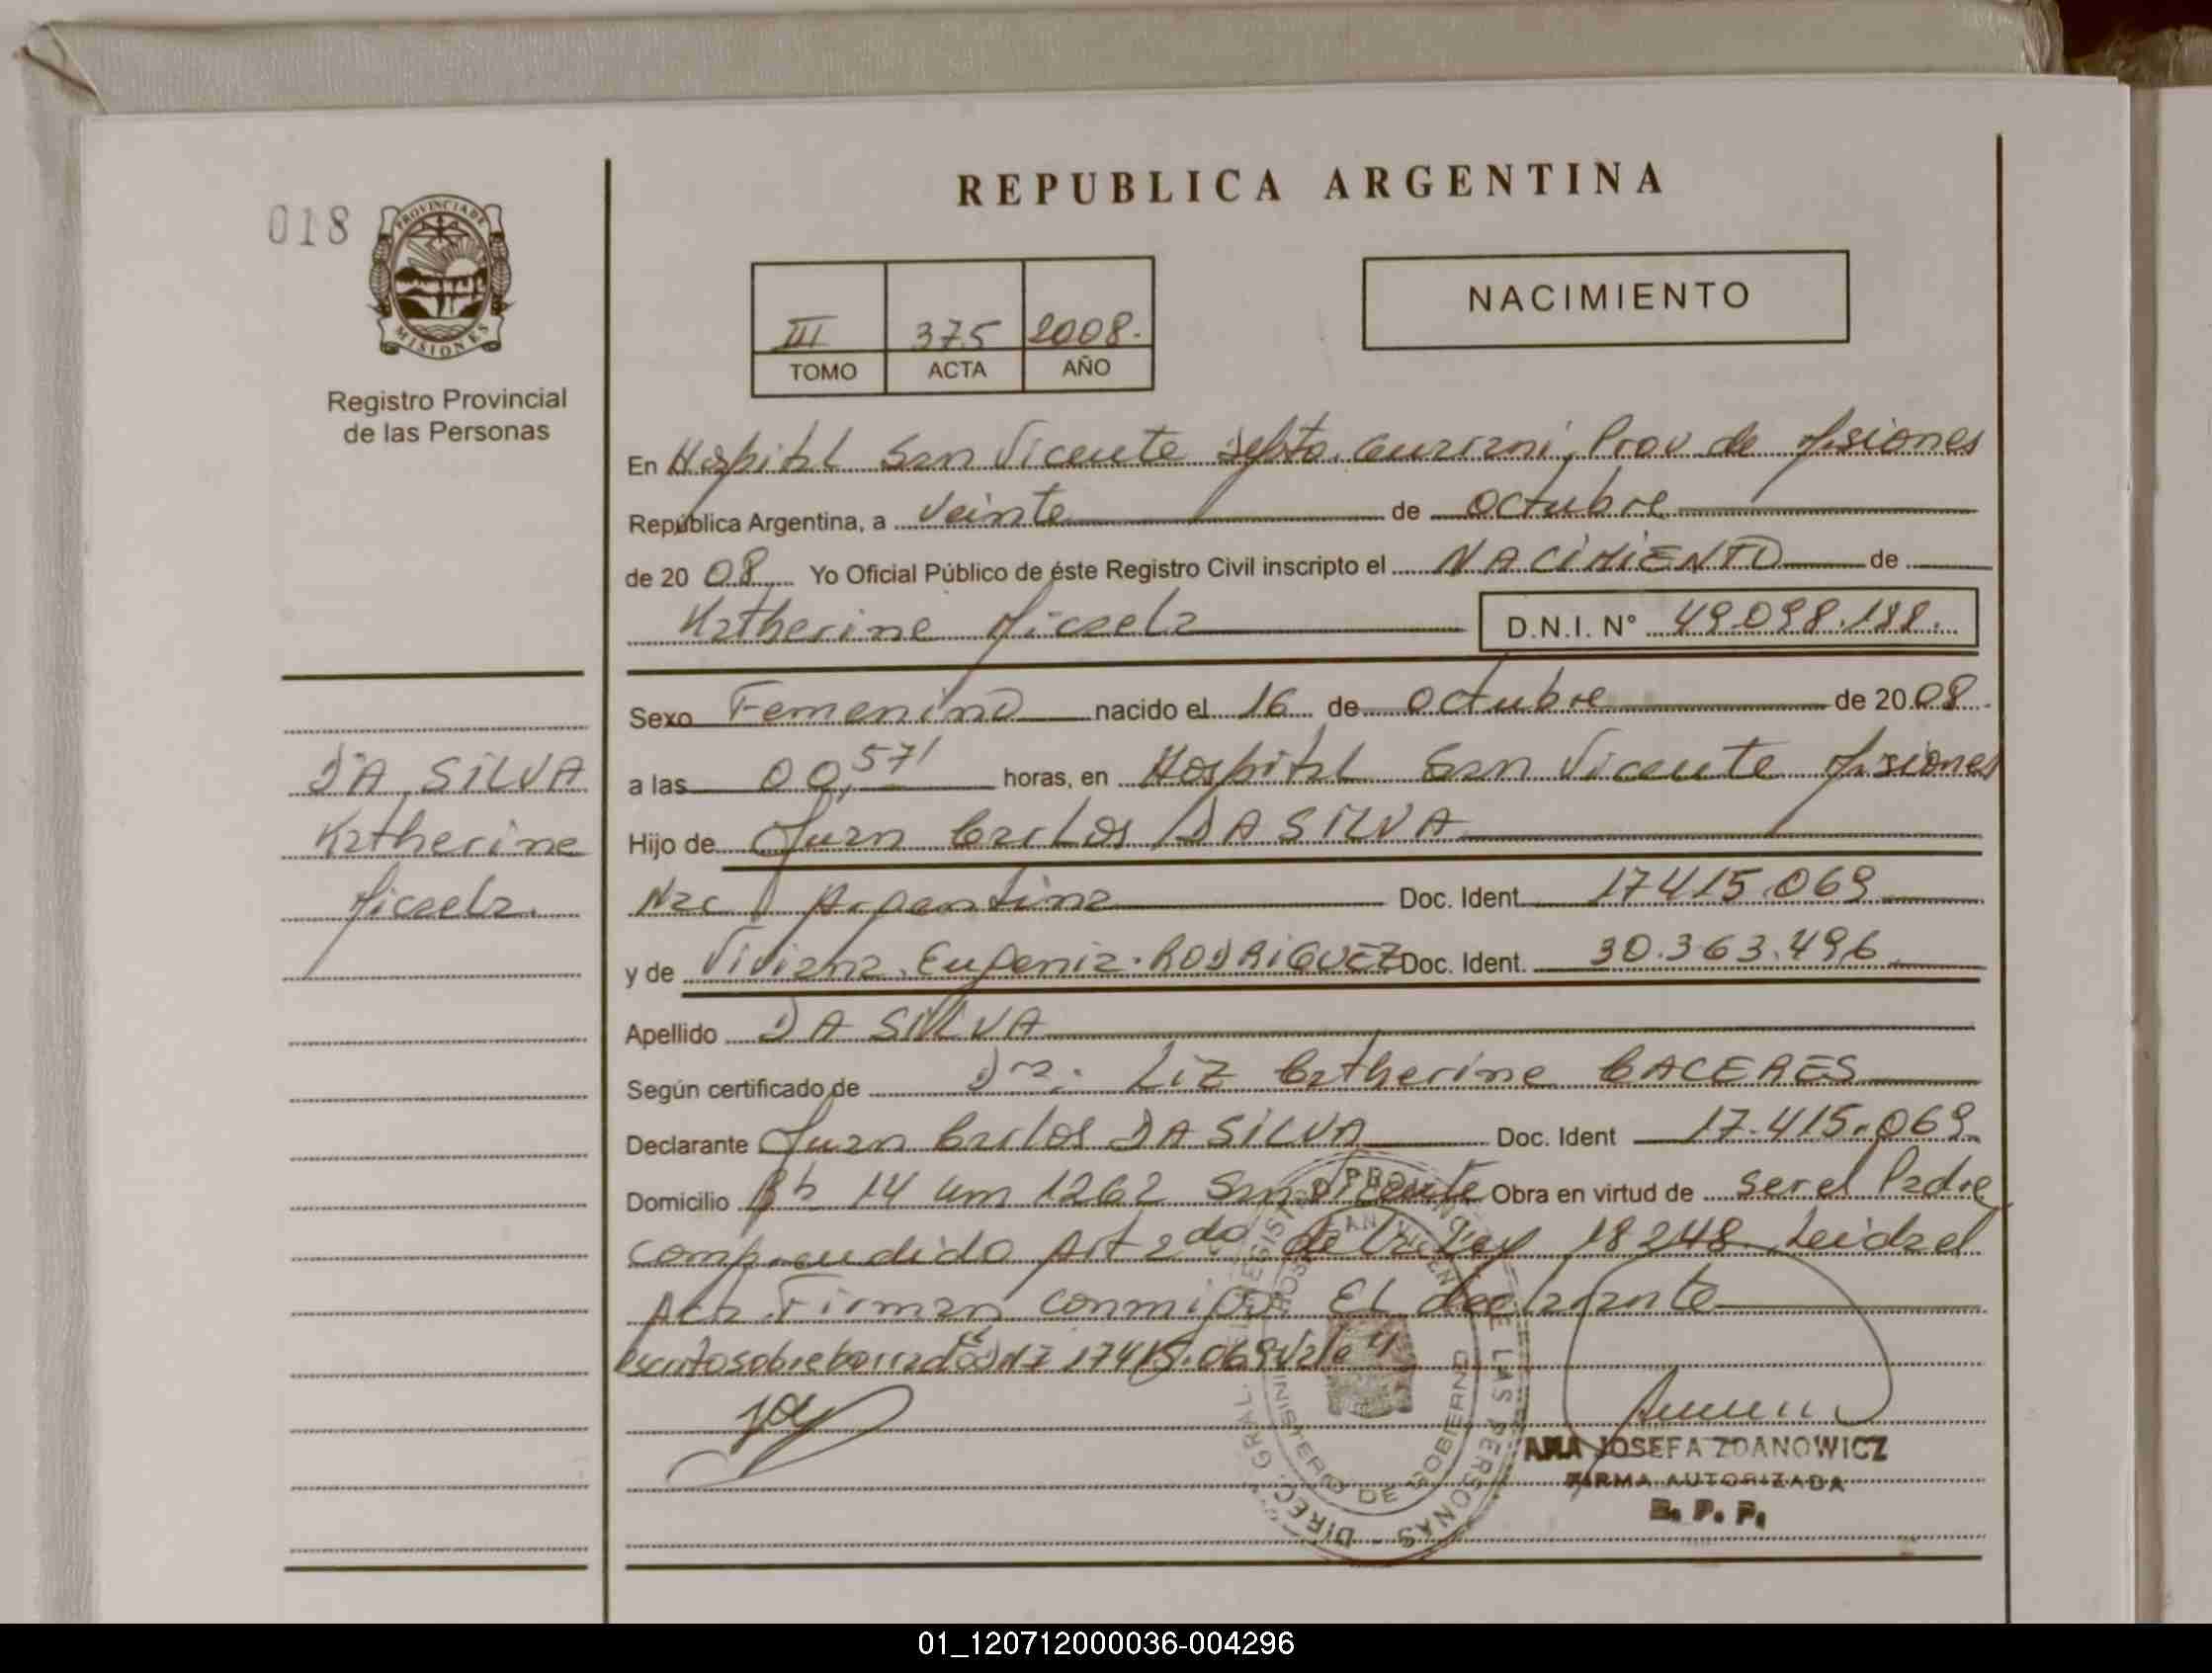 REPUBLICA ARGENTINA
018
PROVINCIA DE
MISIONES
Registro Provincial
de las Personas
NACIMIENTO
III 375 2008.
TOMO ACTA AÑO
En Hospital San Vicente Depto. Guarani, Prov de Misiones
República Argentina, a veinte de octubre
de 20 08 Yo Oficial Público de éste Registro Civil inscripto el NACIMIENTO de
Katherine Micaela D.N.I. N° 49.098.188.
Sexo Femenino nacido el 16 de octubre de 20 08.
a las 00,57' horas, en Hospital San Vicente Misiones
Hijo de Juan Carlos DA SILVA
Nac Argentina Doc. Ident. 17415.069
y de Viviana Eugenia RODRIGUEZ Doc. Ident. 30.363.496
Apellido DA SILVA
Según certificado de Dra. Liz Catherine CACERES
Declarante Juan Carlos DA SILVA Doc. Ident 17.415.069
Domicilio 14 Km 1262 San Vicente Obra en virtud de ser el Padre
comprendido Art 2do de la Ley 18248 Leida el
Acta Firman conmigo El declarante
escrito sobre borrado 17415.069 Vale"
DA SILVA
Katherine
Micaela
DIREC. GRAL. DE LAS PERSONAS
MINISTERIO DE GOBIERNO
ANA JOSEFA ZDANOWICZ
FIRMA AUTORIZADA
R. P. P.
01_120712000036-004296